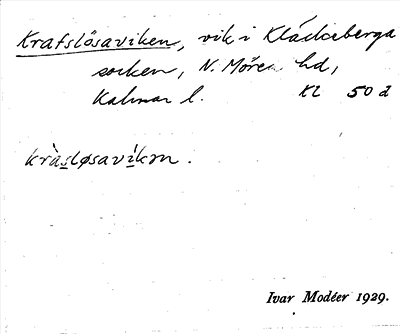 Krafslösaviken, vik i Kläckeberga
socken, N. Möre hd,
Kalmar l. Kl 50 d
kràsløsavíkɷn.
Ivar Modéer 1929.